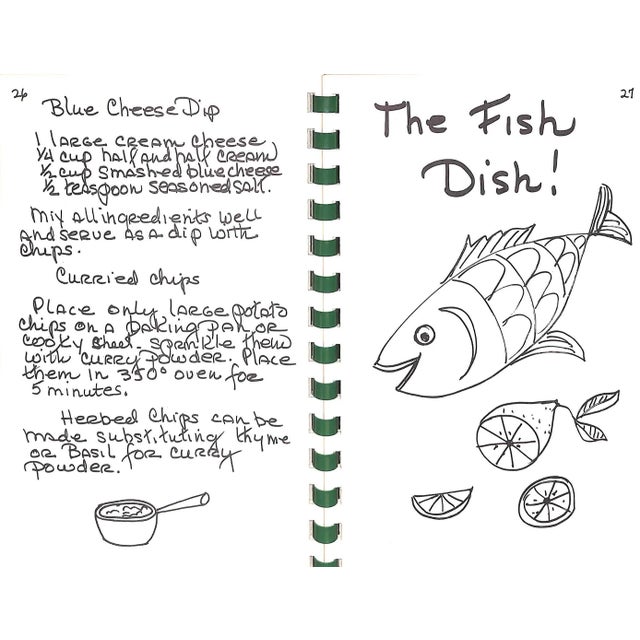 26
Blue Cheese Dip
1 large cream cheese
1/4 cup half and half cream
1/2 cup smashed blue cheese
1/2 teaspoon seasoned salt.
Mix all ingredients well
and serve as a dip with
chips.
Curried chips
Place only large potato
chips on a baking pan or
cooky sheet. Sprinkle them
with curry powder. Place
them in 350° oven for
5 minutes.
Herbed Chips can be
made substituting thyme
or Basil for curry
powder.
27
The Fish
Dish!